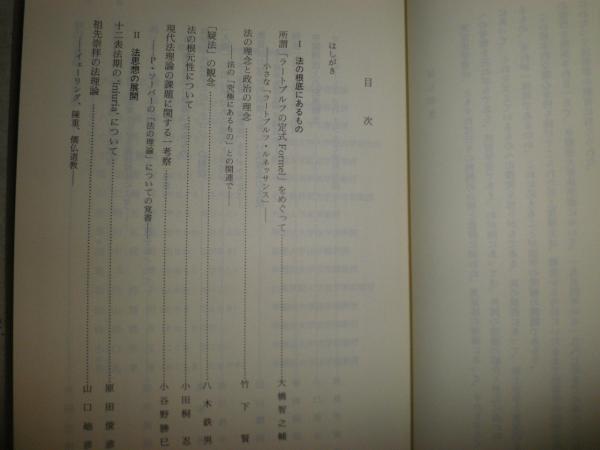 目次
はしがき
Ⅰ 法の根底にあるもの
所謂「ラートブルフの定式 Formel」をめぐって……大橋智之輔
――小さな「ラートブルフ・ルネッサンス」――
法の理念と政治の理念……竹下賢
――法の「究極にあるもの」との関連で――
「疑法」の観念……八木鉄男
法の根元性について……小田桐忍
現代法理論の課題に関する一考察……小谷野勝巳
――P・ソーパーの「法の理論」についての覚書――
Ⅱ 法思想の展開
十二表法期の'iniuria'について……原田俊彦
祖先崇拝の法理論……山口
――イェーリング、陳重、儒仏道教――